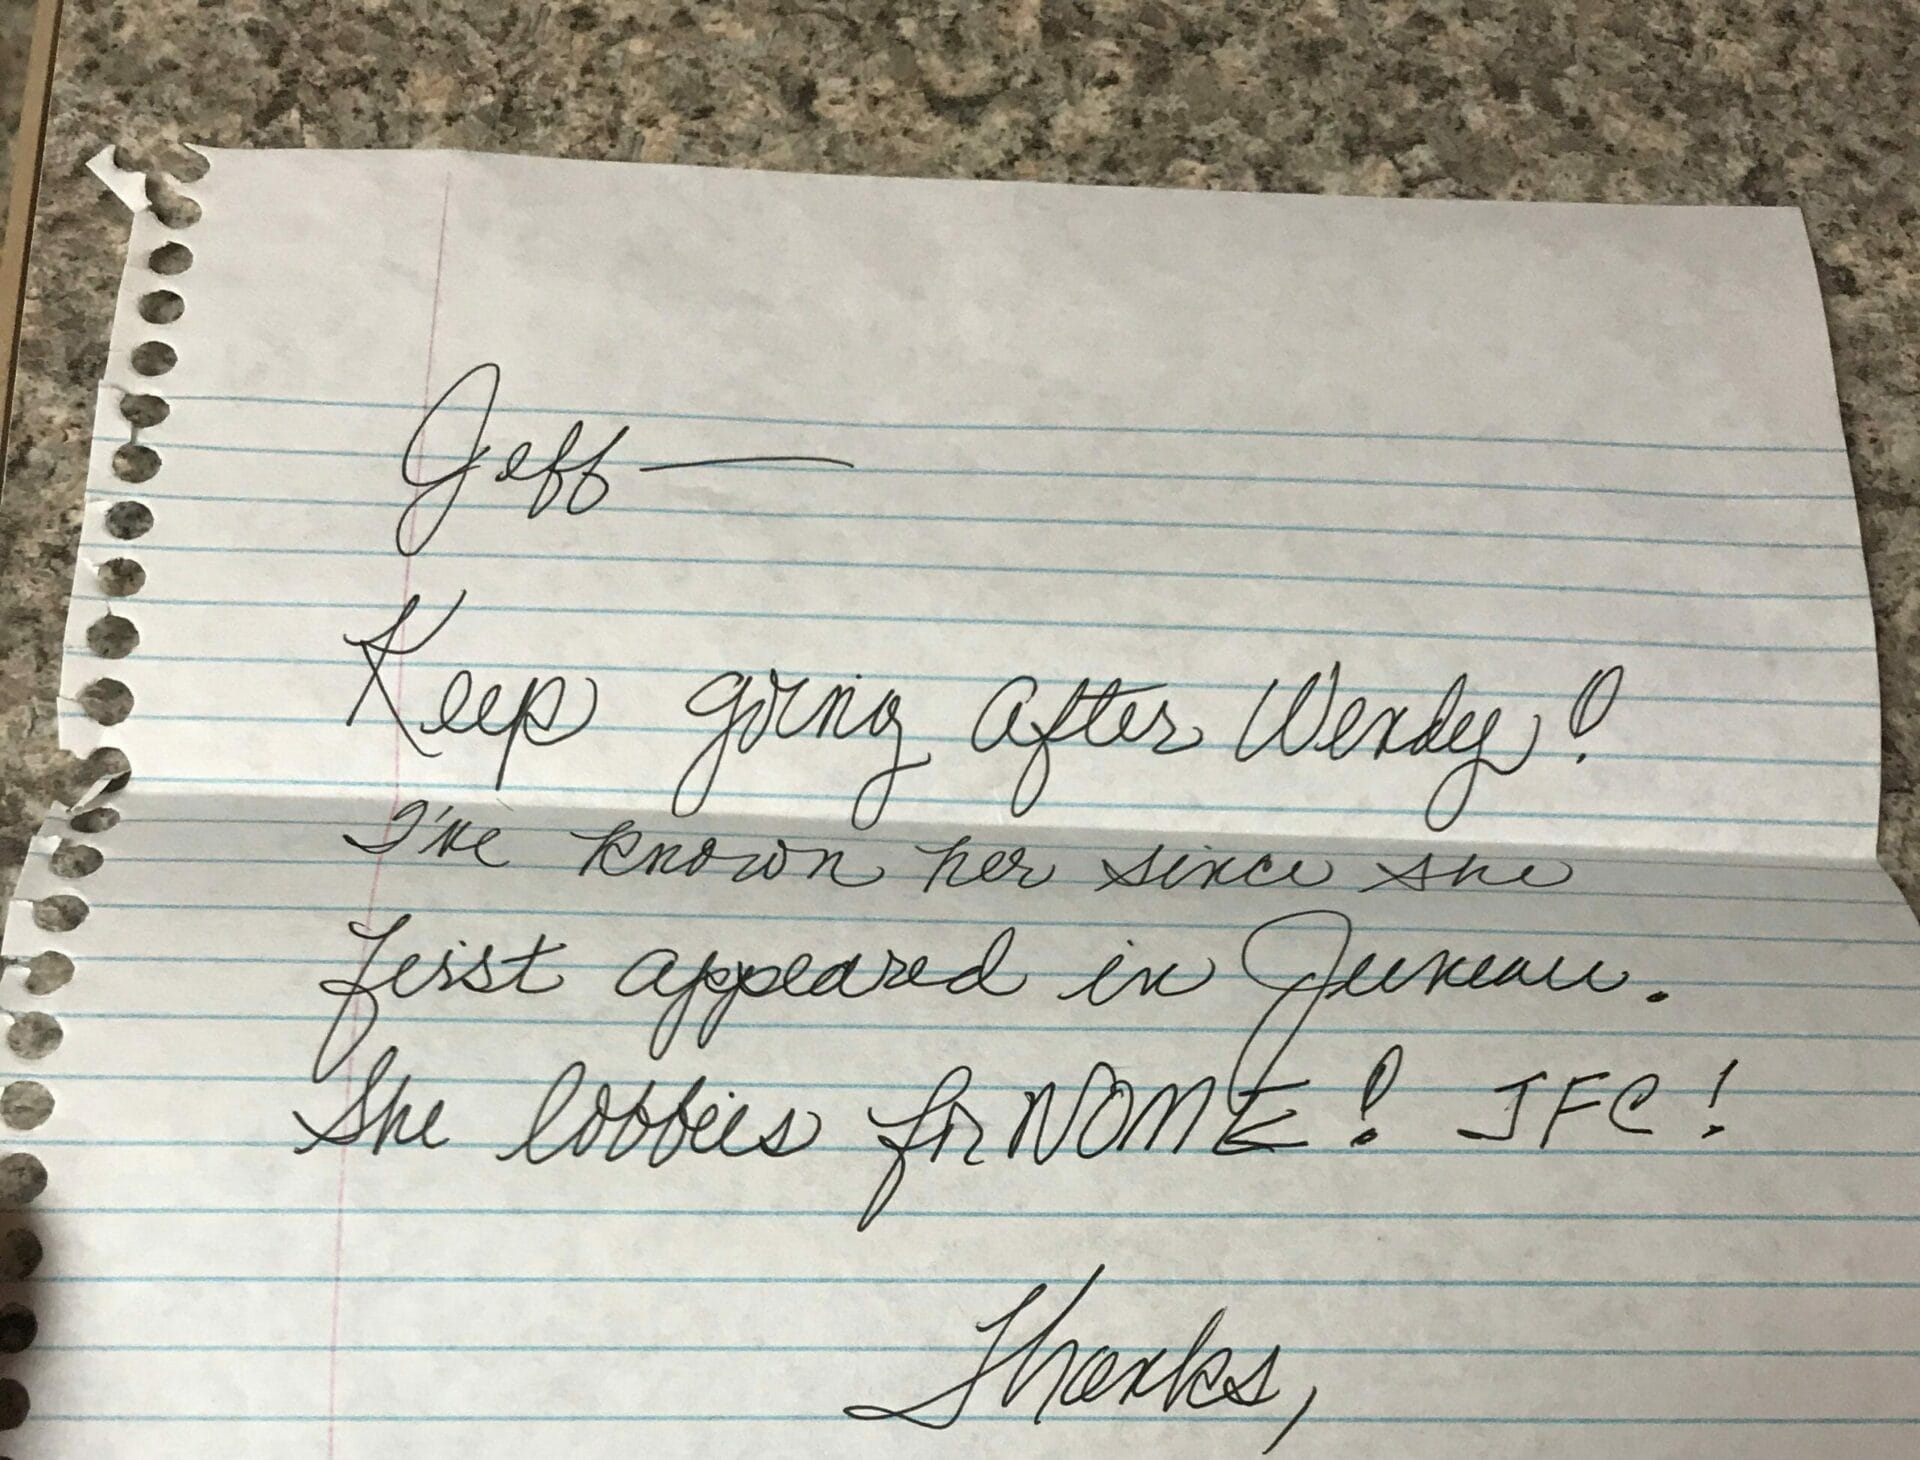 Jeff —
Keep going after Wendy!
I've known her since she
first appeared in Juneau.
She lobbies for NOME! JFC!
Thanks,